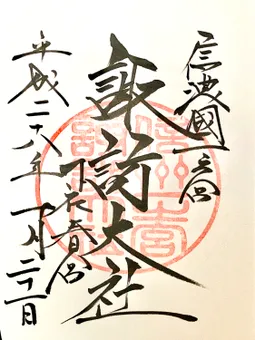 信濃國一之宮
諏訪大社
下社春宮
平成二十八年十月二十一日